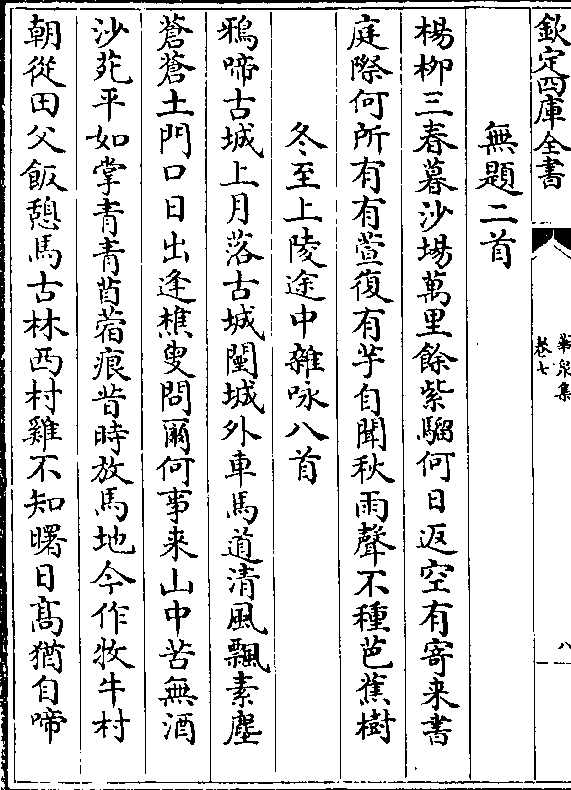 欽定四庫全書
華泉集
卷七
八
無題二首
楊柳三春暮沙場萬里餘紫騮何日返空有寄来書
庭際何所有有萱復有芋自聞秋雨聲不種芭蕉樹
冬至上陵途中雜咏八首
鴉啼古城上月落古城闉城外車馬道清風飄素塵
蒼蒼土門口日出逢樵叟問爾何事来山中苦無酒
沙苑平如掌青青苜蓿痕昔時放馬地今作牧牛村
朝從田父飯憩馬古林西村雞不知曙日髙猶自啼